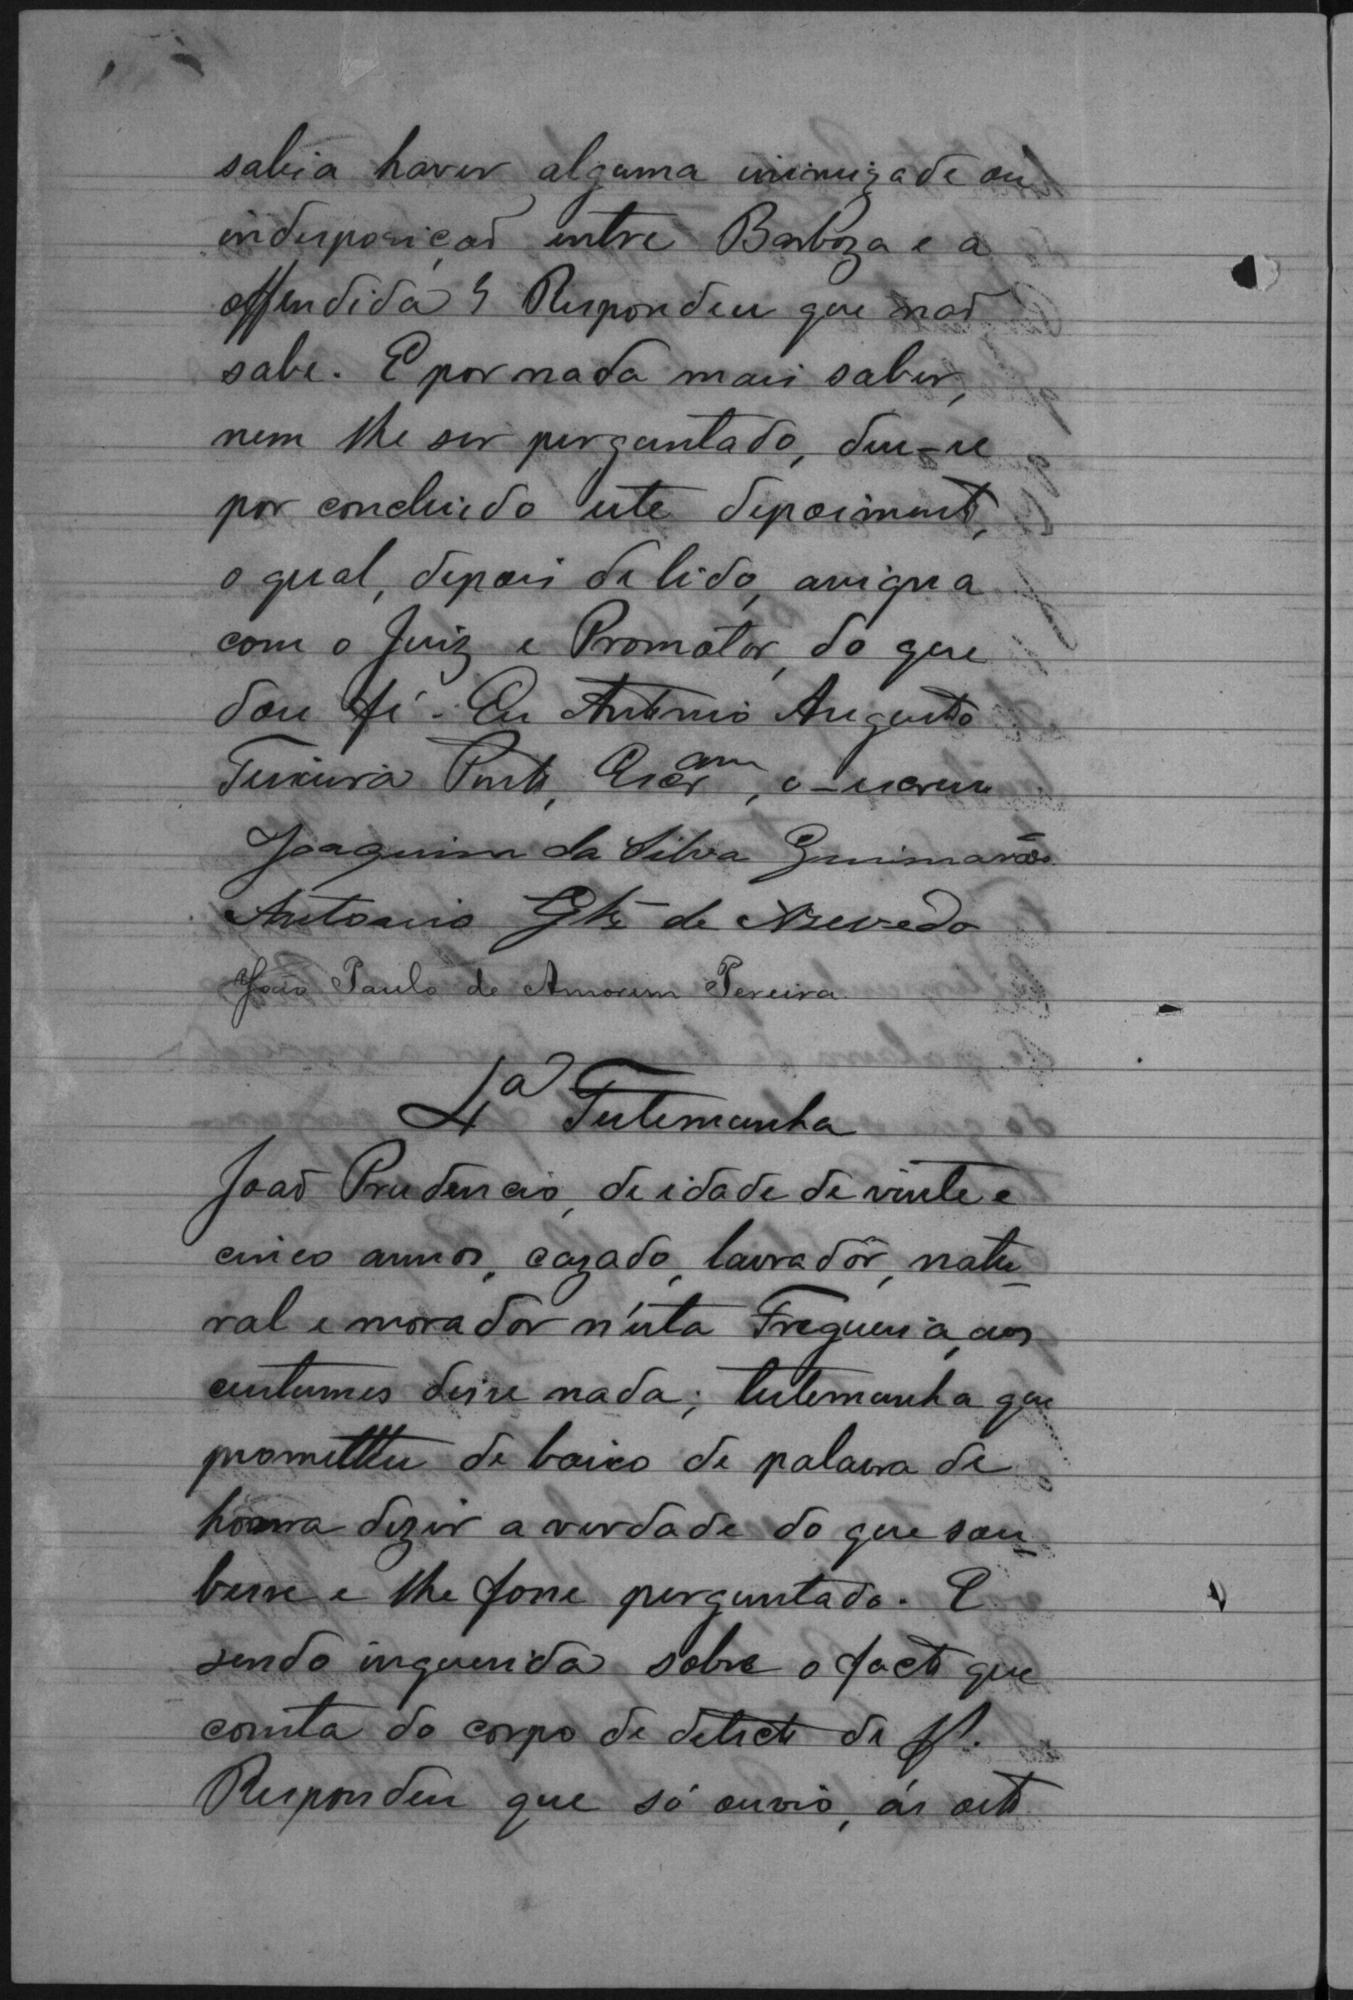 sabia haver alguma inimizade ou
indisposiçaõ entre Barboza e a
offendida? Respondeu que naõ
sabe. E por nada mais saber,
nem lhe ser perguntado, deu-se
por concluido este depoimento,
o qual, depois de lido, assigna
com o Juiz e Promotor, do que
dou fé. Eu Antonio Augusto
Teixeira Pinto, Escram, o-escrevi
Joaquim da Silva Guimarães
Antonio Glz de Azevedo
João Paulo de Amorim Pereira
4a Testemunha
Joaõ Prudencio, de idade de vinte e
cinco annos, cazado, lavradôr, natu-
ral e morador n'esta Freguesia, aos
custumes disse nada; testemunha que
prometteu de baixo de palavra de
honra dizer a verdade do que sou-
besse e lhe fosse perguntado. E
sendo inquerida sobre o facto que
consta do corpo de delicto de fl.
Respondeu que só ouvio, ás oito